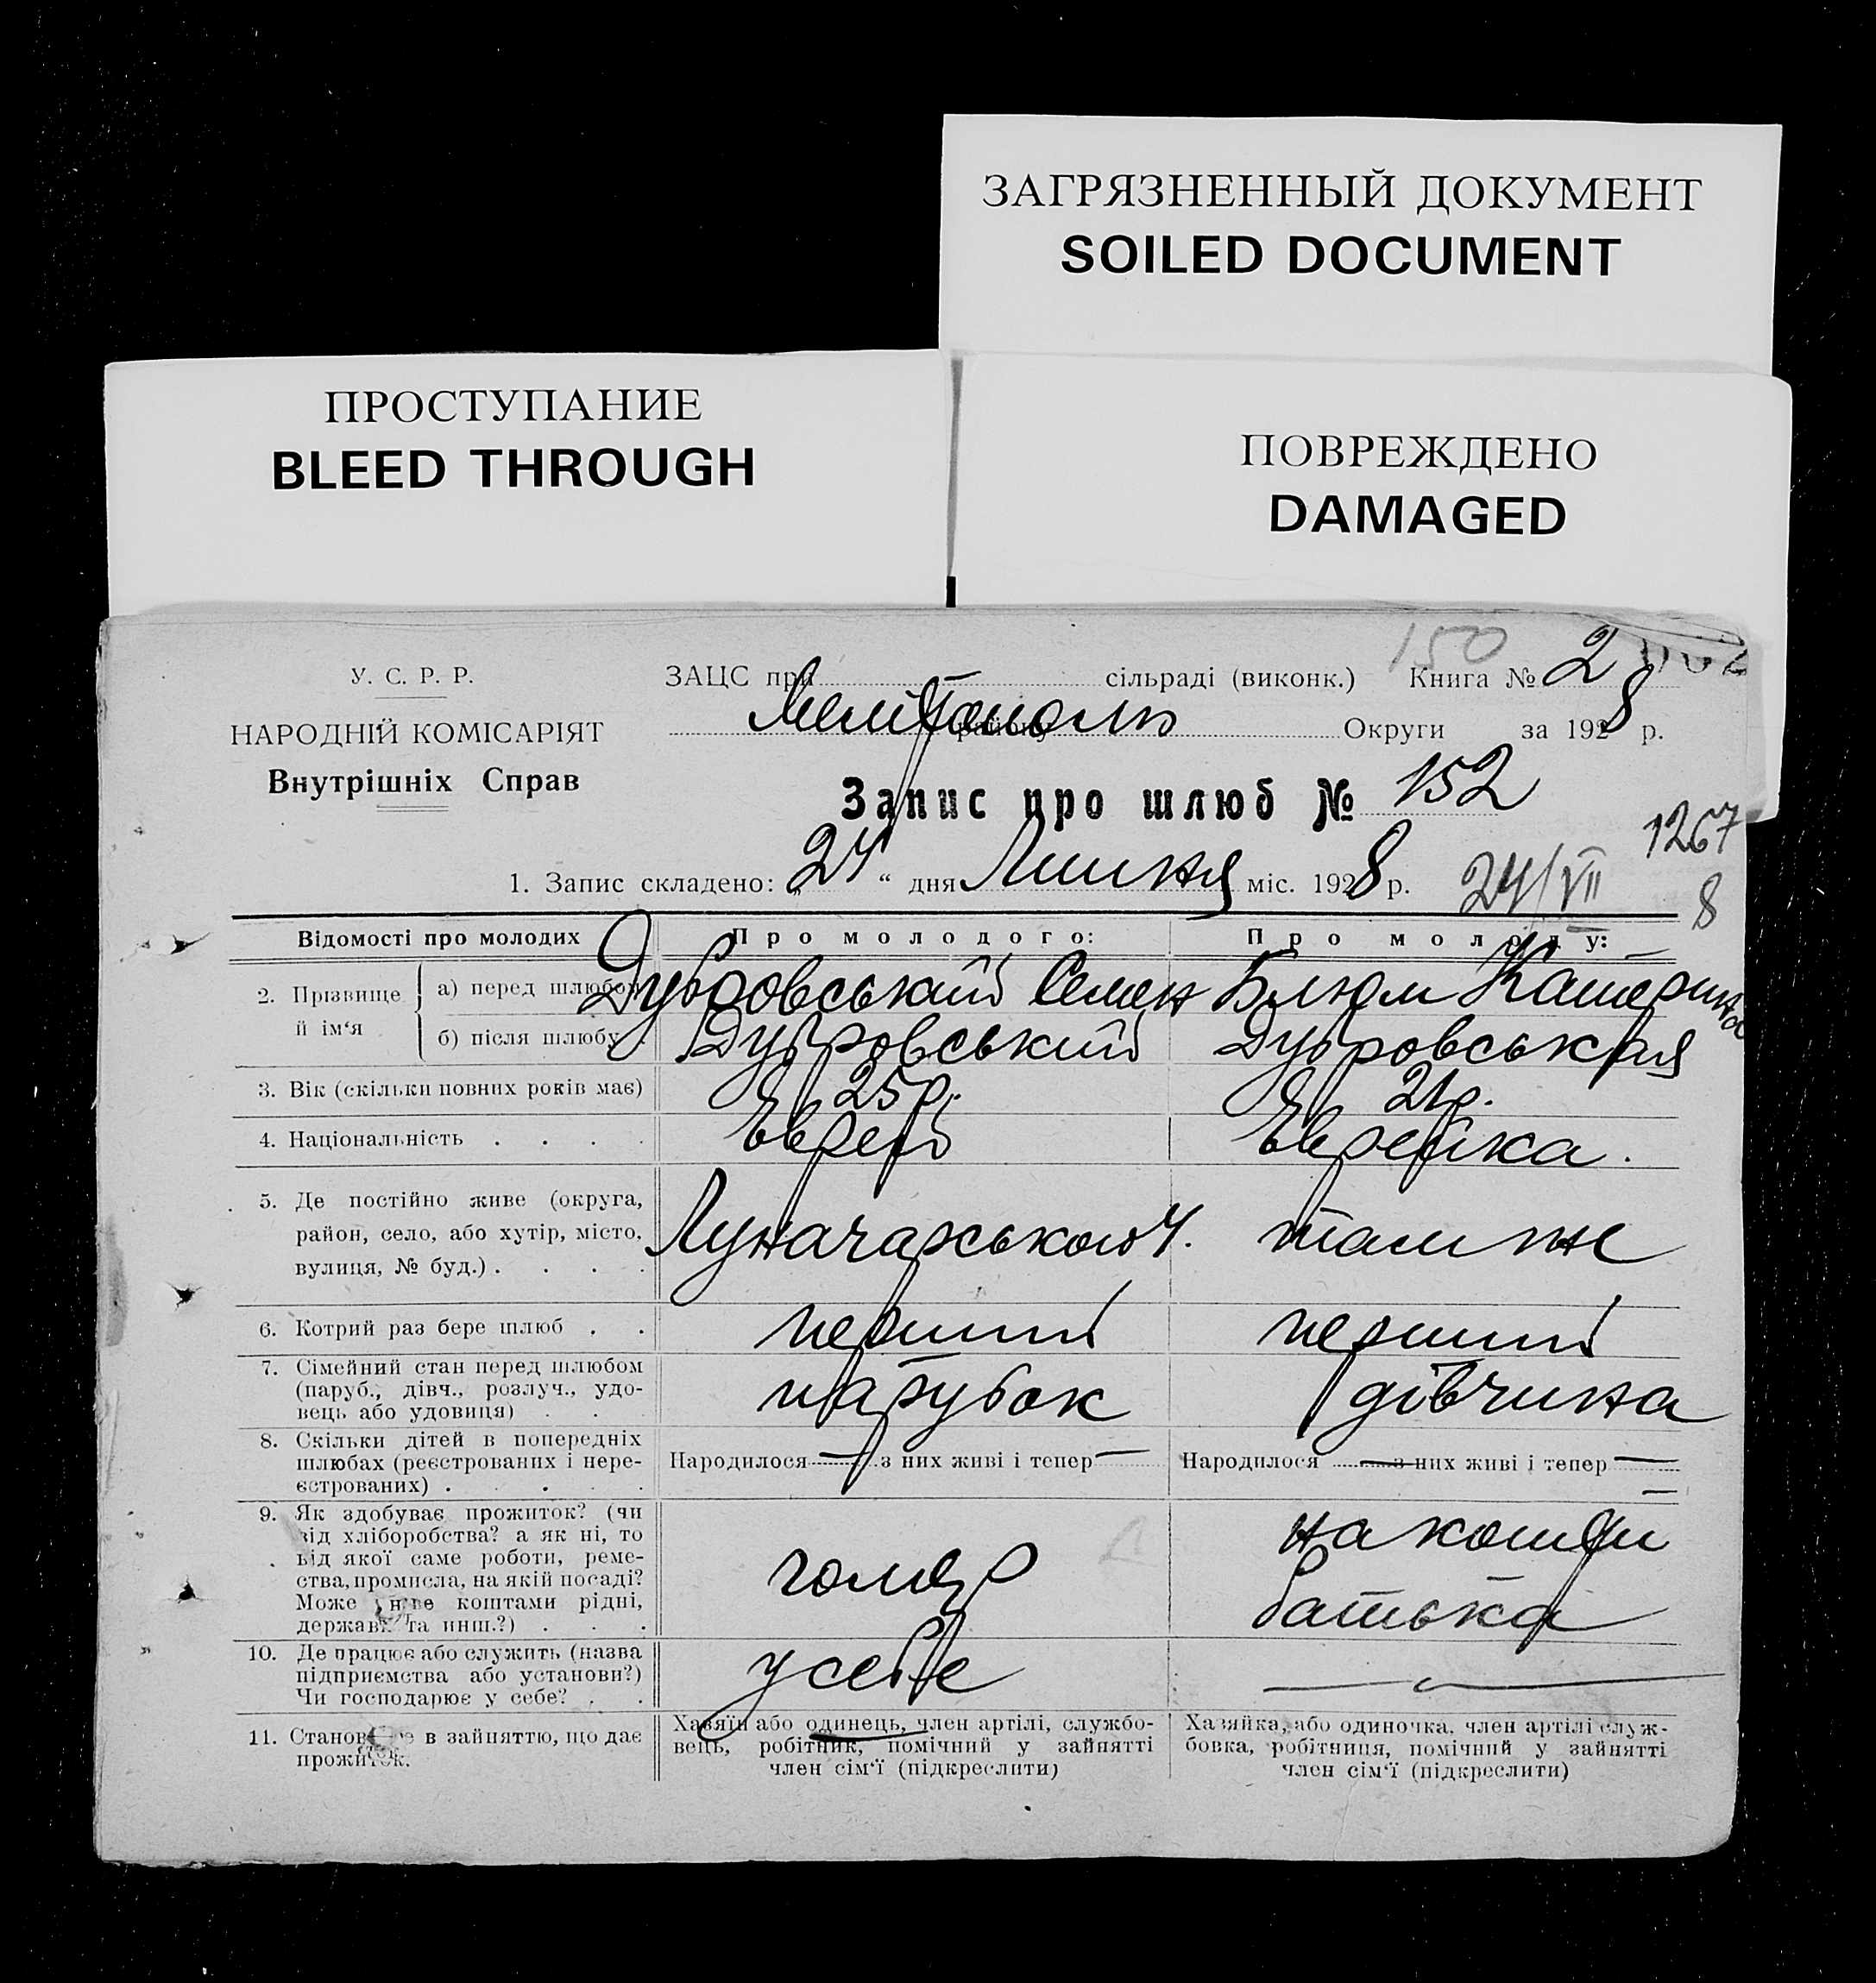 ЗАГРЯЗНЕННЫЙ ДОКУМЕНТ
SOILED DOCUMENT
ПРОСТУПАНИЕ
BLEED THROUGH
ПОВРЕЖДЕНО
DAMAGED
150
У. С. Р. Р.
НАРОДНІЙ КОМІСАРІЯТ
Внутрішніх Справ
ЗАЦС при сільраді (виконк.) Книга № 2
Мелітополь району Округи за 1928 р.
Запис про шлюб № 152
1267
1. Запис складено: „24“ дня Липня міс. 1928 р. 24/VII 8
Відомості про молодих Про молодого: Про молоду:
2. Прізвище й ім‘я
а) перед шлюбом Дубровський Семен Блюм Катерина
б) після шлюбу Дубровський Дубровськая
3. Вік (скільки повних років має) 25 р. 21 р.
4. Національність Еврей Еврейка.
5. Де постійно живе (округа,
район, село, або хутір, місто,
вулиця, № буд.) Луначарського 4. там же
6. Котрий раз бере шлюб перший перший
7. Сімейний стан перед шлюбом
(паруб., дівч., розлуч., удо-
вець або удовиця) парубок дівчина
8. Скільки дітей в попередніх
шлюбах (реєстрованих і нере-
єстрованих) Народилося — з них живі і тепер — Народилося — з них живі і тепер —
9. Як здобуває прожиток? (чи
від хліборобства? а як ні, то
від якої саме роботи, реме-
ства, промисла, на якій посаді?
Може живе коштами рідні,
держави та инш.?) голяр на кошти батька
10. Де працює або служить (назва
підприємства або установи?)
Чи господарює у себе? у себе —
11. Становище в зайняттю, що дає
прожиток.
Хазяїн або одинець, член артілі, службо-
вець, робітник, помічний у зайнятті
член сім‘ї (підкреслити)
Хазяйка, або одиночка, член артілі служ-
бовка, робітниця, помічний у зайнятті
член сім‘ї (підкреслити)